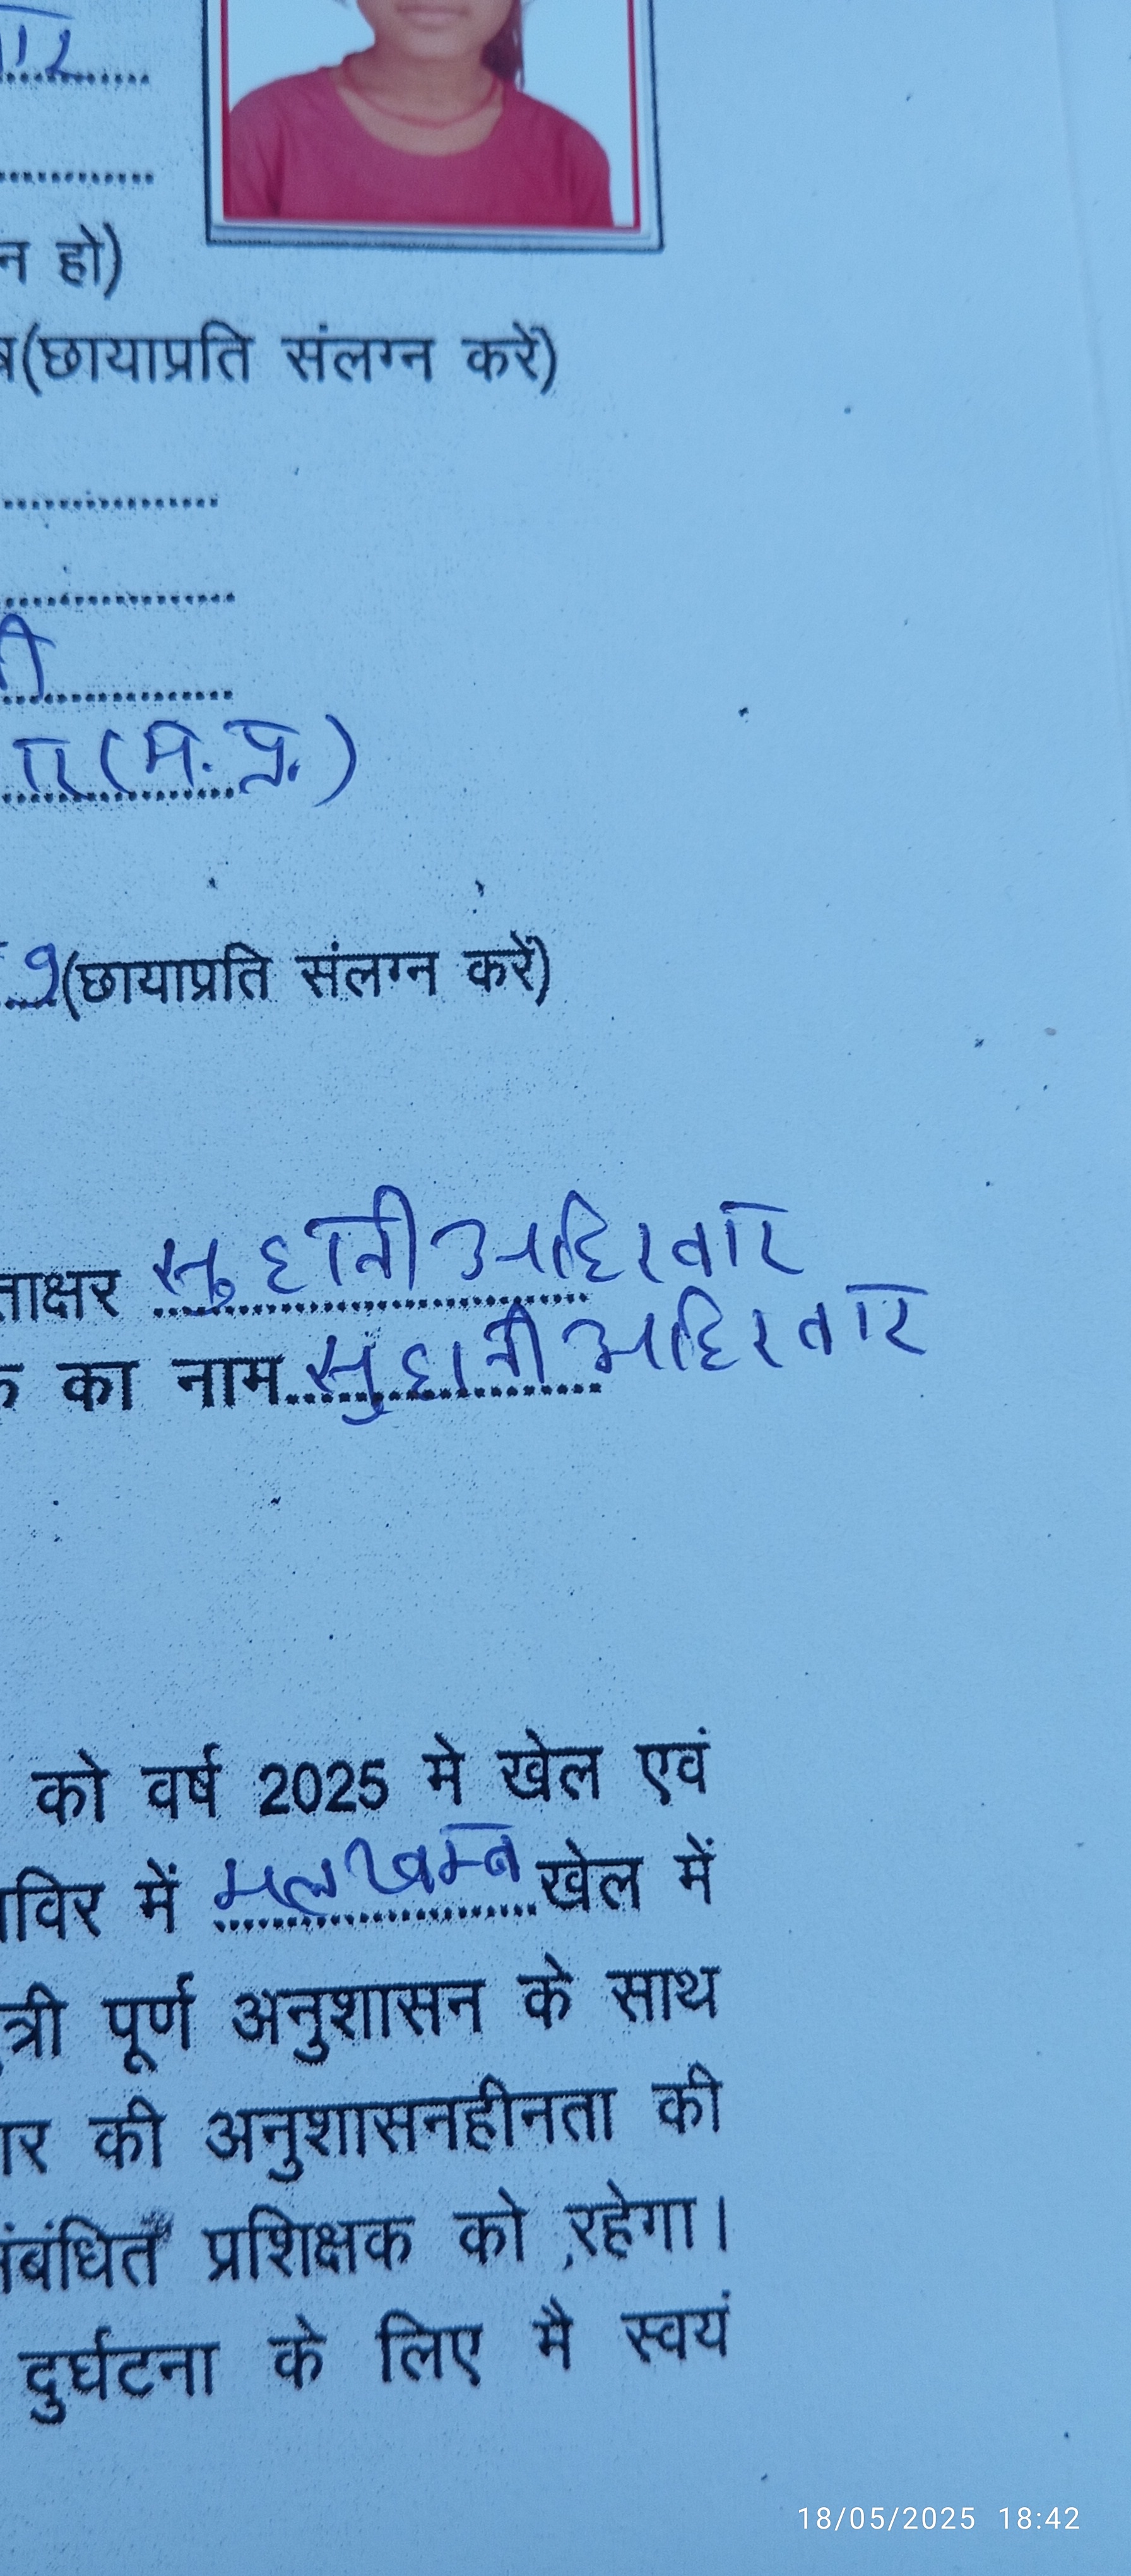 ार
न हो)
(छायाप्रति संलग्न करें)
ी
ार (म.प्र.)
9 (छायाप्रति संलग्न करें)
ताक्षर सुहानी अहिरवार
का नाम सुहानी अहिरवार
को वर्ष 2025 मे खेल एवं
ाविर में मलखम्ब खेल में
त्री पूर्ण अनुशासन के साथ
ार की अनुशासनहीनता की
ंबंधित प्रशिक्षक को रहेगा।
दुर्घटना के लिए मै स्वयं
18/05/2025 18:42